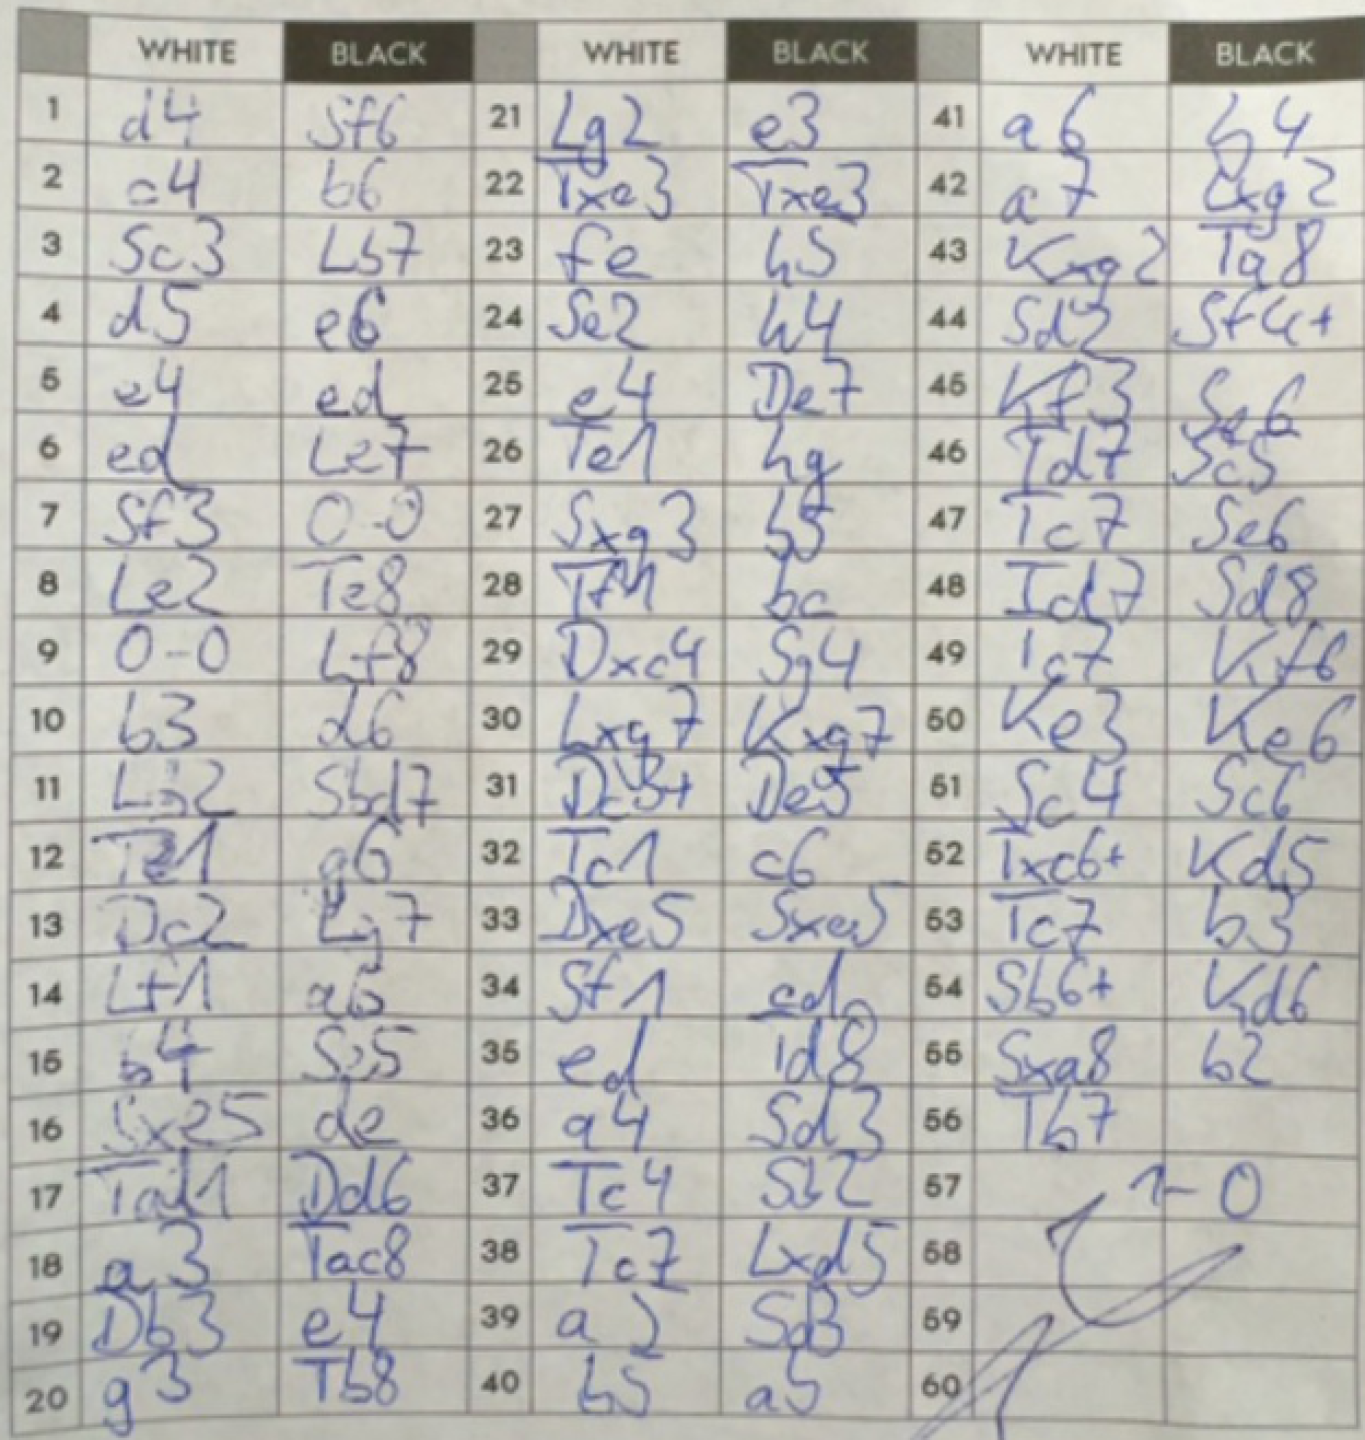 WHITE BLACK WHITE BLACK WHITE BLACK
1 d4 Sf6 21 Lg2 e3 41 a6 b4
2 c4 b6 22 Txe3 Txe3 42 a7 Lxg2
3 Sc3 Lb7 23 fe h5 43 Kxg2 Ta8
4 d5 e6 24 Se2 h4 44 Sd2 Sf4+
5 e4 ed 25 e4 De7 45 Kf3 Se6
6 ed Le7 26 Te1 hg 46 Td7 Sc5
7 Sf3 0-0 27 Sxg3 b5 47 Tc7 Se6
8 Le2 Te8 28 Tf1 bc 48 Td7 Sd8
9 0-0 Lf8 29 Dxc4 Sg4 49 Tc7 Kf6
10 b3 d6 30 Lxg7 Kxg7 50 Ke3 Ke6
11 Lb2 Sbd7 31 Dc3+ De5 51 Sc4 Sc6
12 Te1 g6 32 Tc1 c6 52 Txc6+ Kd5
13 Dc2 Lg7 33 Dxe5 Sxe5 53 Tc7 b3
14 Lf1 a6 34 Sf1 cd 54 Sb6+ Kd6
15 b4 Se5 35 ed Td8 55 Sxa8 b2
16 Sxe5 de 36 a4 Sd3 56 Tb7
17 Tad1 Dd6 37 Tc4 Sb2 57 1-0
18 a3 Tac8 38 Tc7 Lxd5 58
19 Db3 e4 39 a2 Sd3 59
20 g3 Tb8 40 b5 a5 60